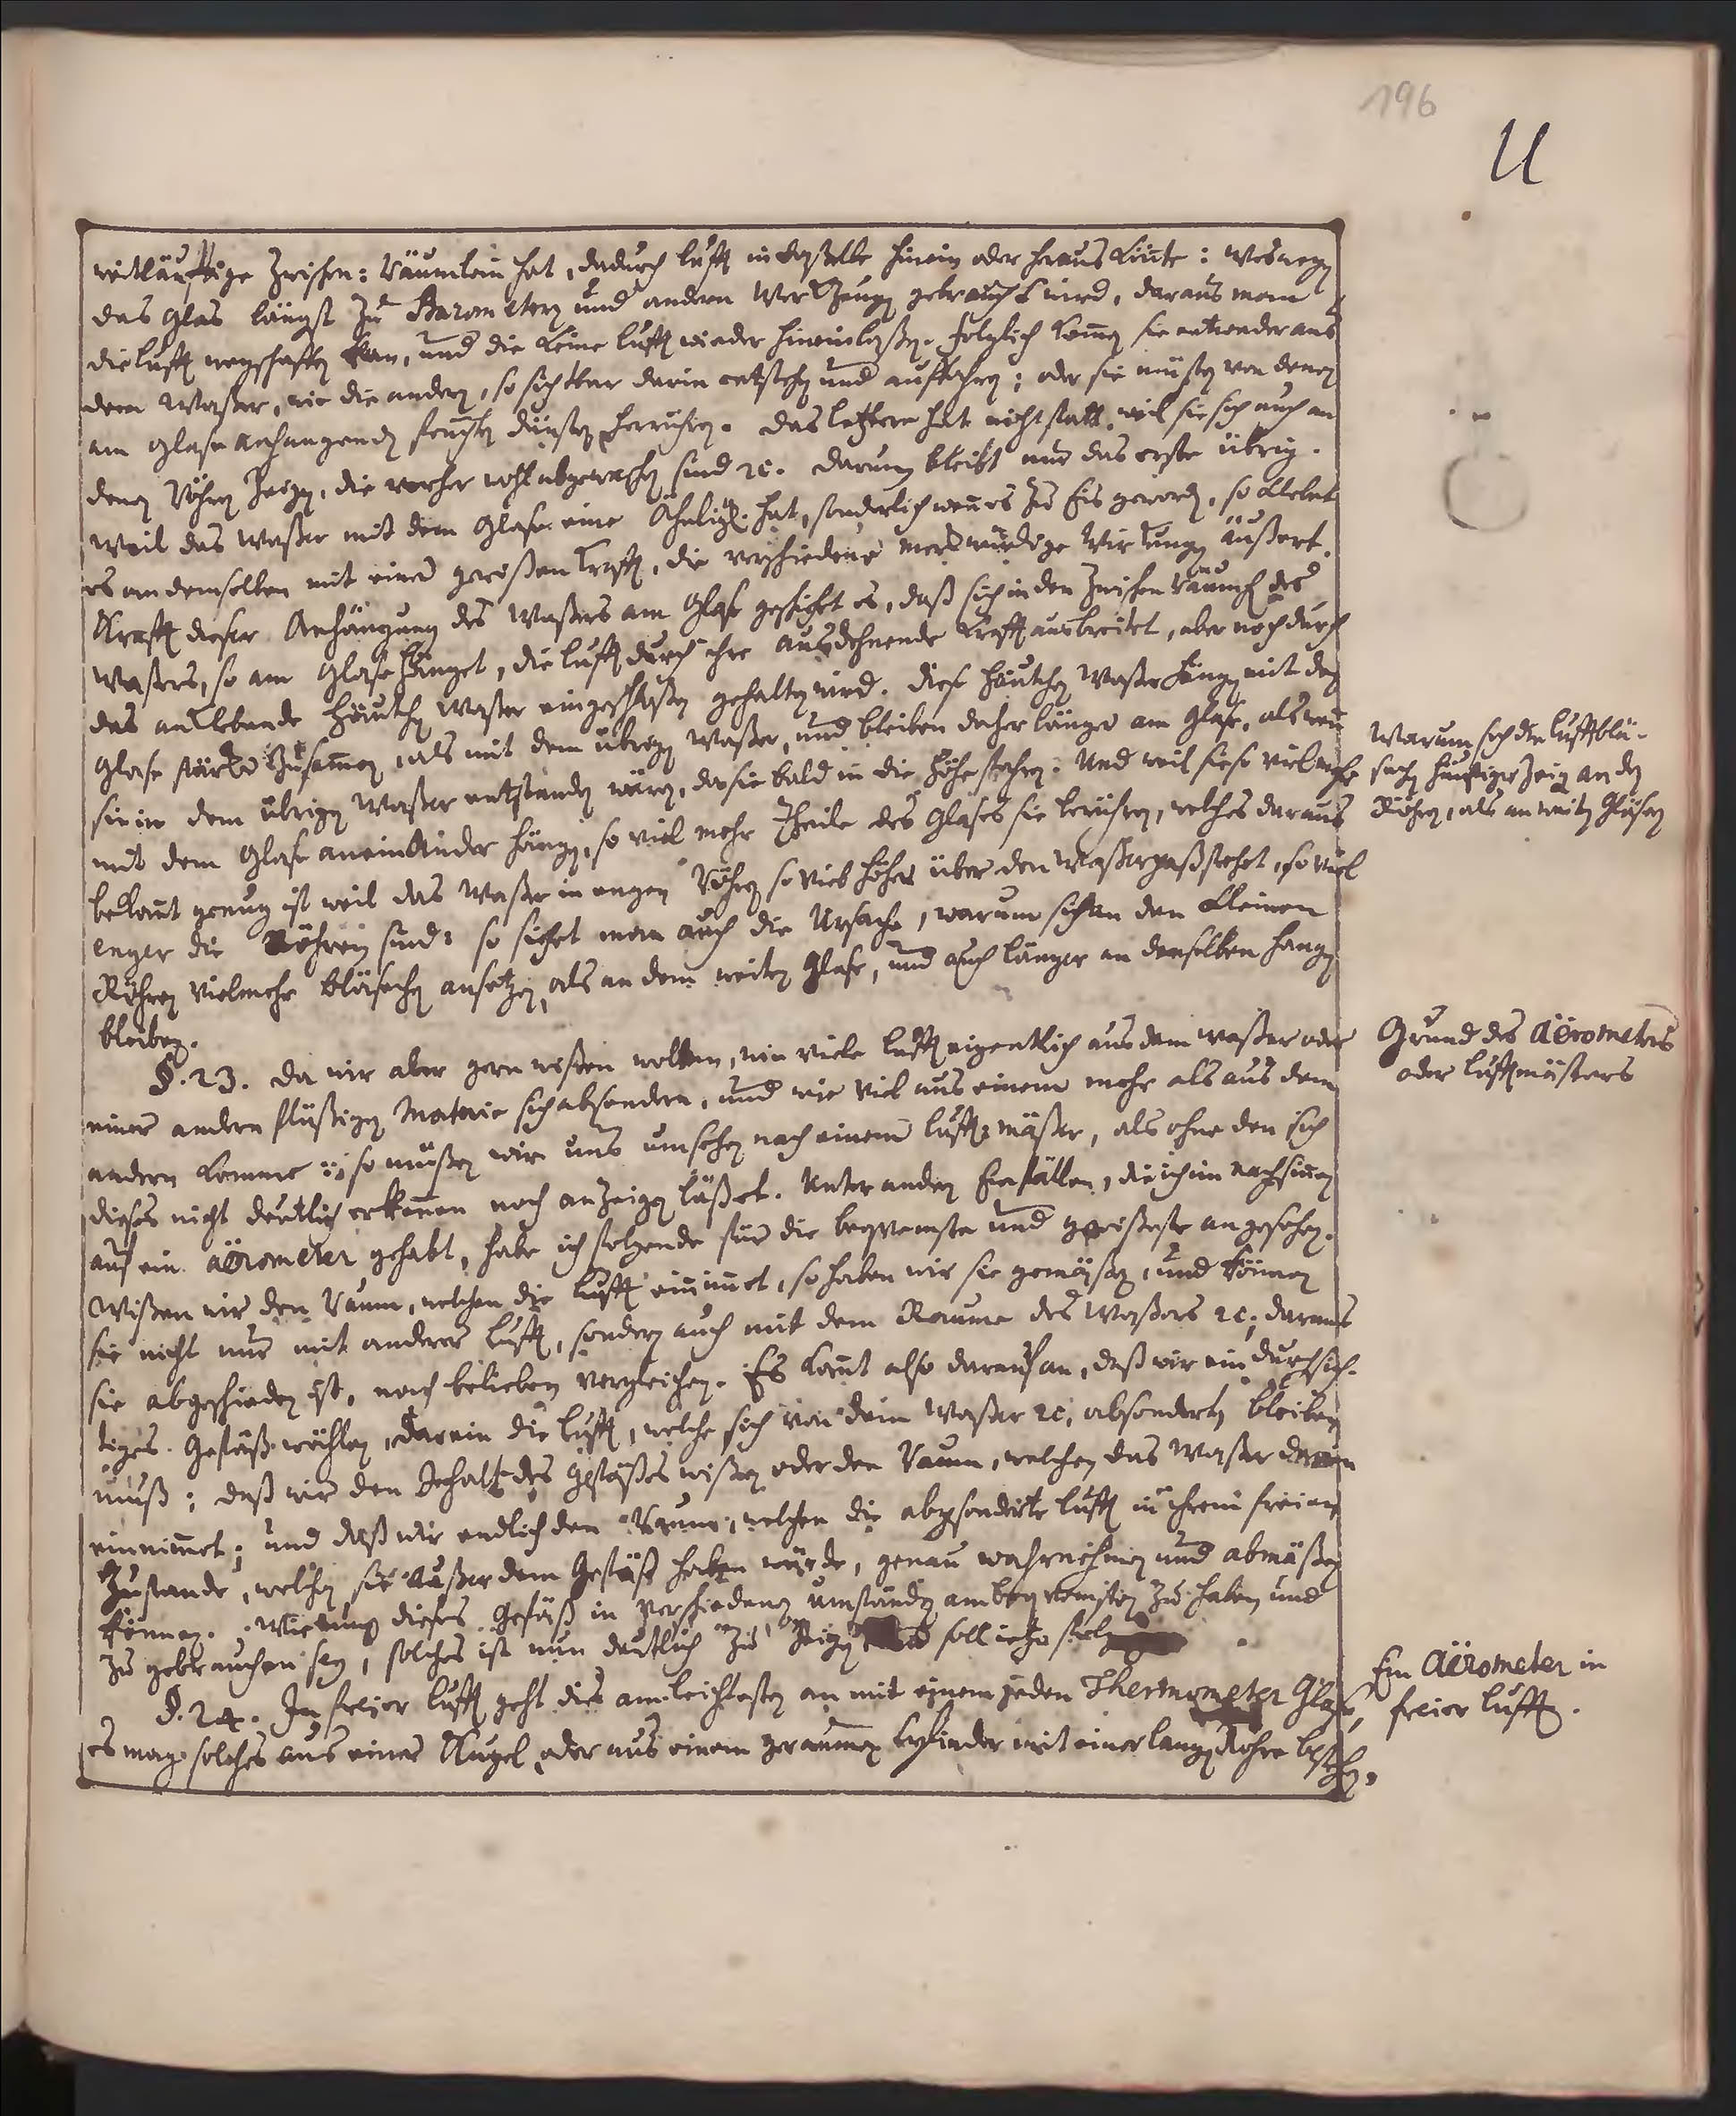 196
U
weitläuftige Zwischen-Räumlein hat, dadurch Luft in daßelbe hinein oder heraus könte: Weswegen
das Glas längst zu Barometern und andern Werkzeugen gebraucht wird, daraus man
die Luft wegschaffen kan, und die keine Luft wieder hineinlaßen. Folglich komen sie entweder aus
dem Waßer, wie die andern, so sichtbar darin entstehen und auffahren; oder sie müsten von denen
am Glase anhangenden feuchten Dünsten herrühren. Das letztere hat nicht statt, weil sie sich auch an
denen Röhren zeigen, die vorher wohl abgewaschen sind ꝛc. Darum bleibt nur das erste übrig.
Weil das Waßer mit dem Glase eine Ähnligk. hat, sonderlich wenn es zu Eis geworden, so klebet
es an demselben mit einer gewißen Kraft, die verschiedene merkwürdige Wirkungen äußert.
Kraft dieser Anhängung des Waßers am Glase geschiehet es, daß sich in den Zwischen Räumen des
Waßers, so am Glase hänget, die Luft durch ihre ausdehnende Kraft ausbreitet, aber noch durch
das anklebende Häutchen Waßer eingeschloßen gehalten wird. Diese Häutchen Waßer hängen mit dem
Glase stärker zusammen, als mit dem übrigen Waßer, und bleiben daher länger am Glase, als wenn
sie in dem übrigen Waßer entstanden wären, da sie bald in die Höhe fahren. Und weil sie so viel mehr
mit dem Glase aneinander hängen, so viel mehr Theile des Glases sie berühren, welches daraus
bekannt genug ist weil das Waßer in engen Röhren so viel höher über den Waßerpaß stehet, so viel
enger die Röhren sind: so siehet man auch die Ursache, warum sich an den kleinen
Röhren vielmehr Bläschen ansetzen, als an dem weiten Glase, und auch länger an denselben hangen
bleiben.
Warum sich die Luftblä-
schen häufiger zeigen an den
Röhren, als an weiten Gläsern
§. 23. Da wir aber gern wißen wolten, wie viele Luft eigentlich aus dem Waßer oder
einer andern flüßigen Materie sich absondern, und wie viel aus einem mehr als aus dem
andern komme: so müßen wir uns umsehen nach einem Luft-mäßer, als ohne den sich
dieses nicht deutlich erkennen noch anzeigen läßet. Unter andern Einfällen, die ich im Nachsinnen
auf ein Aërometer gehabt, habe ich folgende für die bequemste und gewißeste angesehen.
Wißen wir den Raum, welchen die Luft einnimmet, so haben wir sie gemäßen, und können
sie nicht nur mit anderer Luft, sondern auch mit dem Raume des Waßers ꝛc. daraus
sie abgeschieden ist, nach belieben vergleichen. Es komt also darauf an, daß wir ein durchsich-
tiges Gefäß wählen, darein die Luft, welche sich von dem Waßer ꝛc. absondert, bleiben
muß; daß wir den Inhalt des Gefäßes wißen oder den Raum, welchen das Waßer darin
einnimmet; und daß wir endlich den Raum, welchen die abgesonderte Luft in ihrem freien
Zustande, welchen sie außer dem Gefäß haben würde, genau wahrnehmen und abmäßen
können. Wie nun dieses Gefäß in verschiedenen Umständen am bequemsten zu haben und
zu gebrauchen sey, solches ist nun deutlich zu zeigen soll
Grund des Aërometers
oder Luftmäßers
§. 24. In freier Luft geht dies am leichtesten an mit einem jeden Thermometer Glase,
es mag solches aus einer Kugel oder aus einem geraumen Cylinder mit einer langen Röhre bestehen,
Ein Aërometer in
freier Luft.